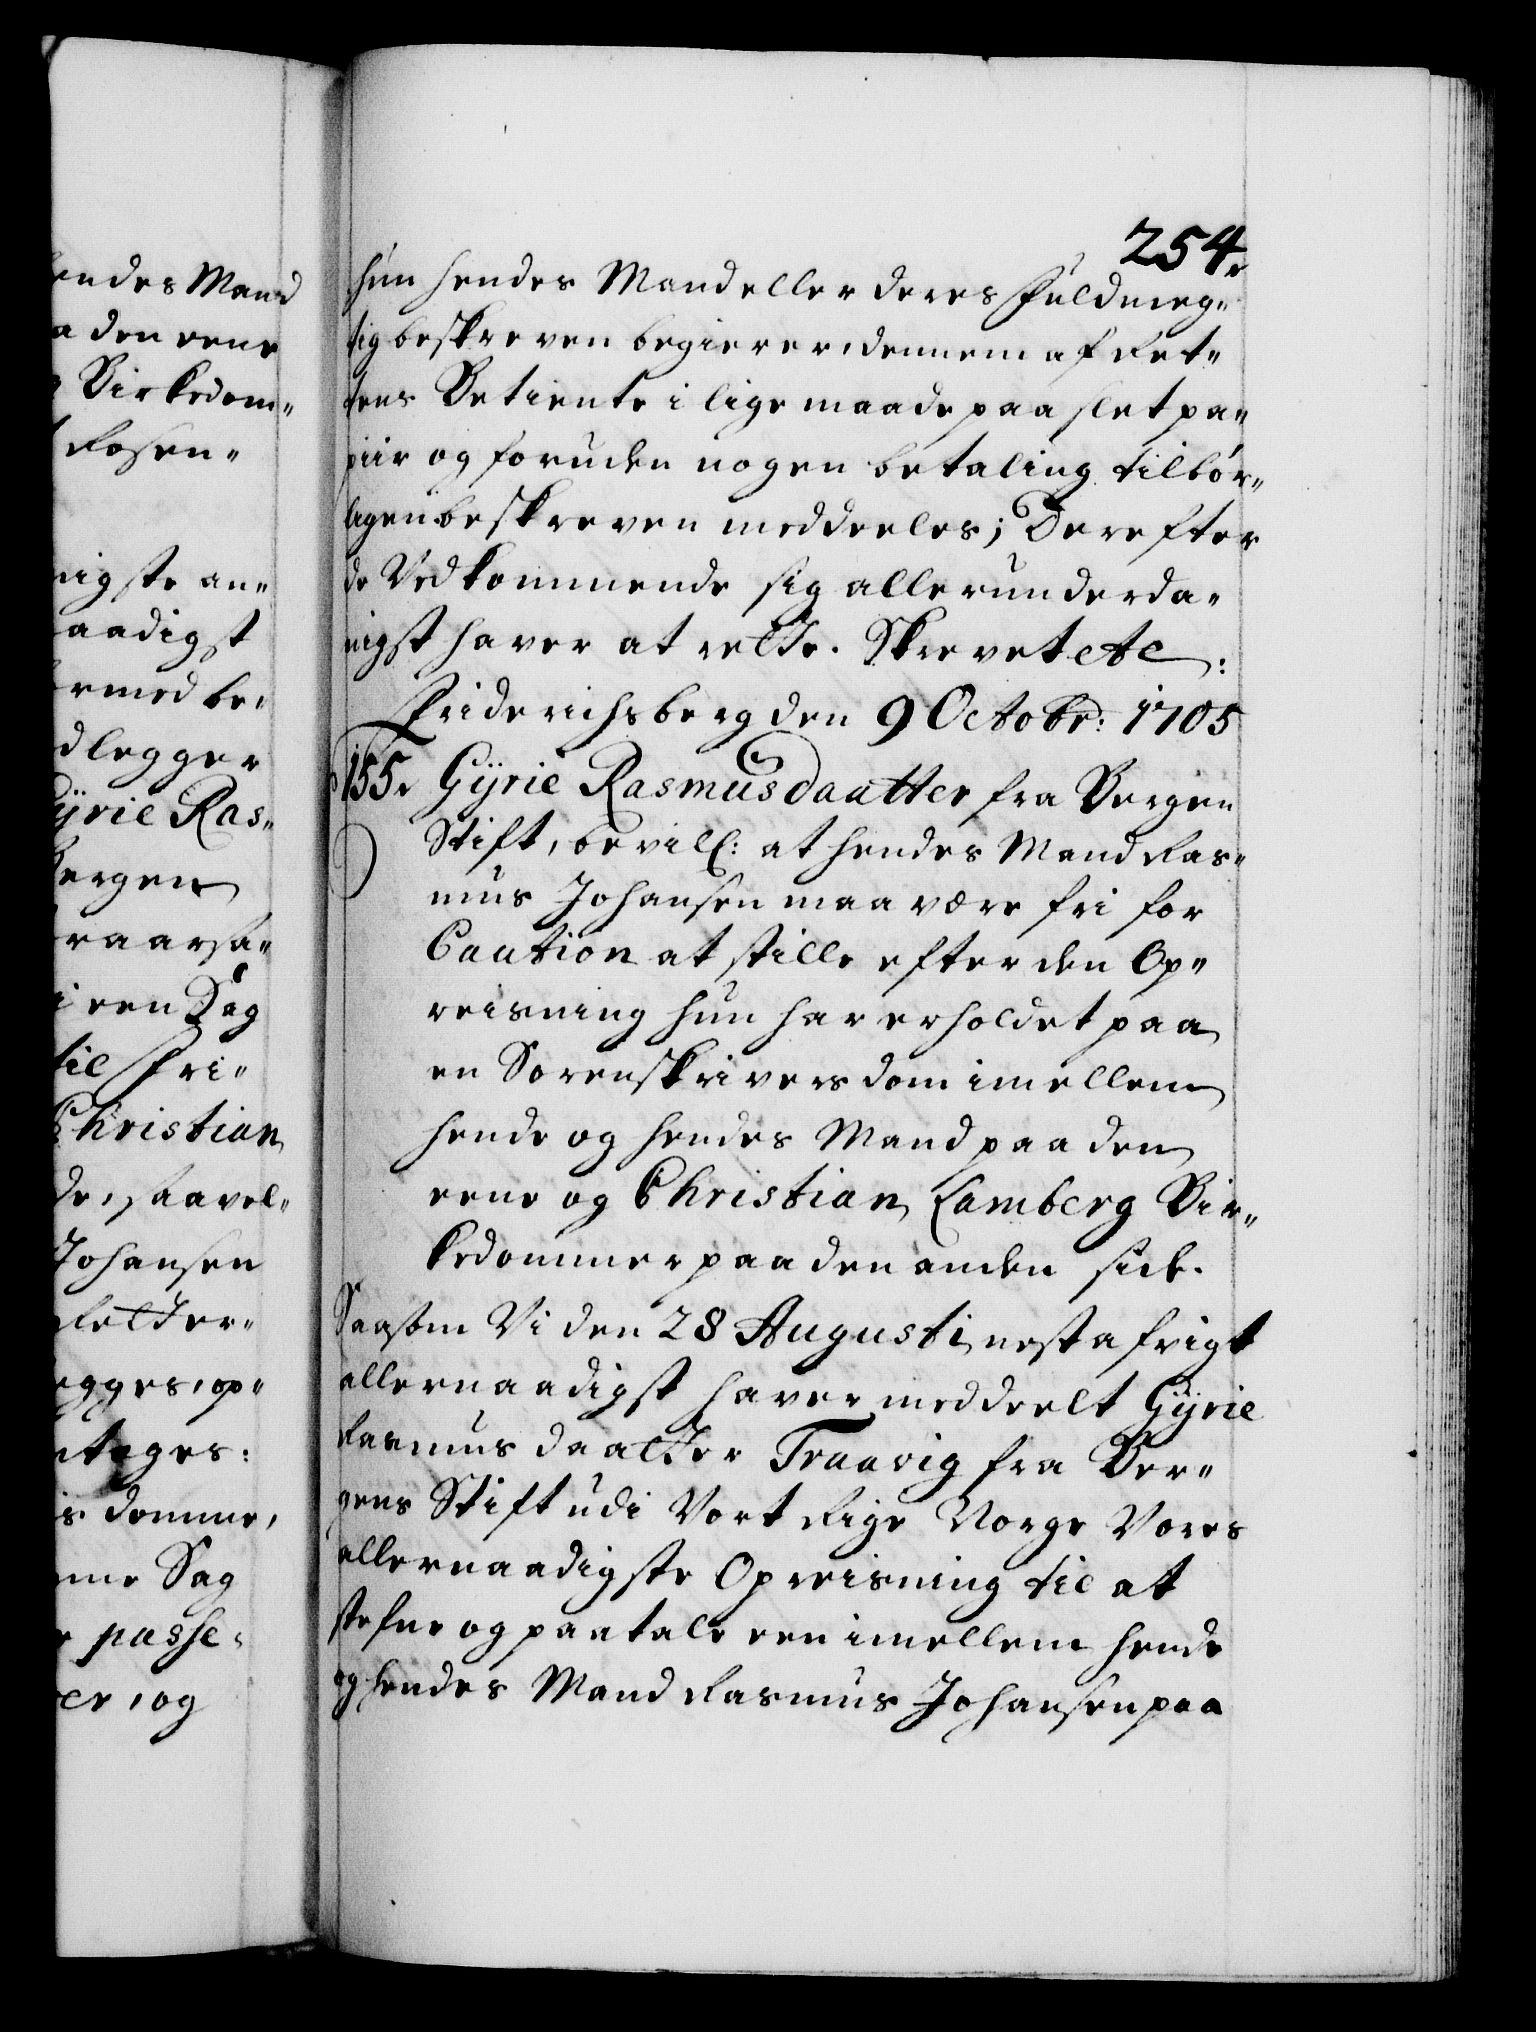 endes Mand
a den eene
Birkedom„
Rosen„
nigste an„
aadigst
ermed be„
dlegger
Gyrie Ras„
Bergen
raarsa„
i een Sag
til Fri„
Christian
de, saavel„
Johansen
Retter„
egges, op„
ntages:
is domme,
nne Sag
passe„
er, og
254.
hun hendes Mand eller deres Fuldmeg„
tig beskreven begierer, dennem af Ret„
tens Betiente i lige maade paa slet pa„
piir og foruden nogen betaling tilbør„
ligen beskreven meddeeles; Derefter
de Vedkommende sig allerunderda„
nigst haver at rette. Skrevet etc:
Friderichsberg den 9 Octobr: 1705
155. Gÿrie Rasmusdaatter fra Bergen
Stift, bevilg: at hendes Mand Ras„
mus Johansen maa være fri for
Caution at stille efter den Op„
reisning hun har erholdet paa
en Sorenskrivers dom imellem
hende og hendes Mand paa den
eene og Christian Lamberg Bir„
kedommer paa den anden side.
Saasom Vi den 28 Augusti nest afvigt
allernaadigst haver meddeelt Gÿrie
Rasmusdaatter Traavig fra Ber„
gens Stift udi Vort Rige Norge Vores
allernaadigste Opreisning til at
stefne og paatale een imellem hende
og hendes Mand Rasmus Johansen paa